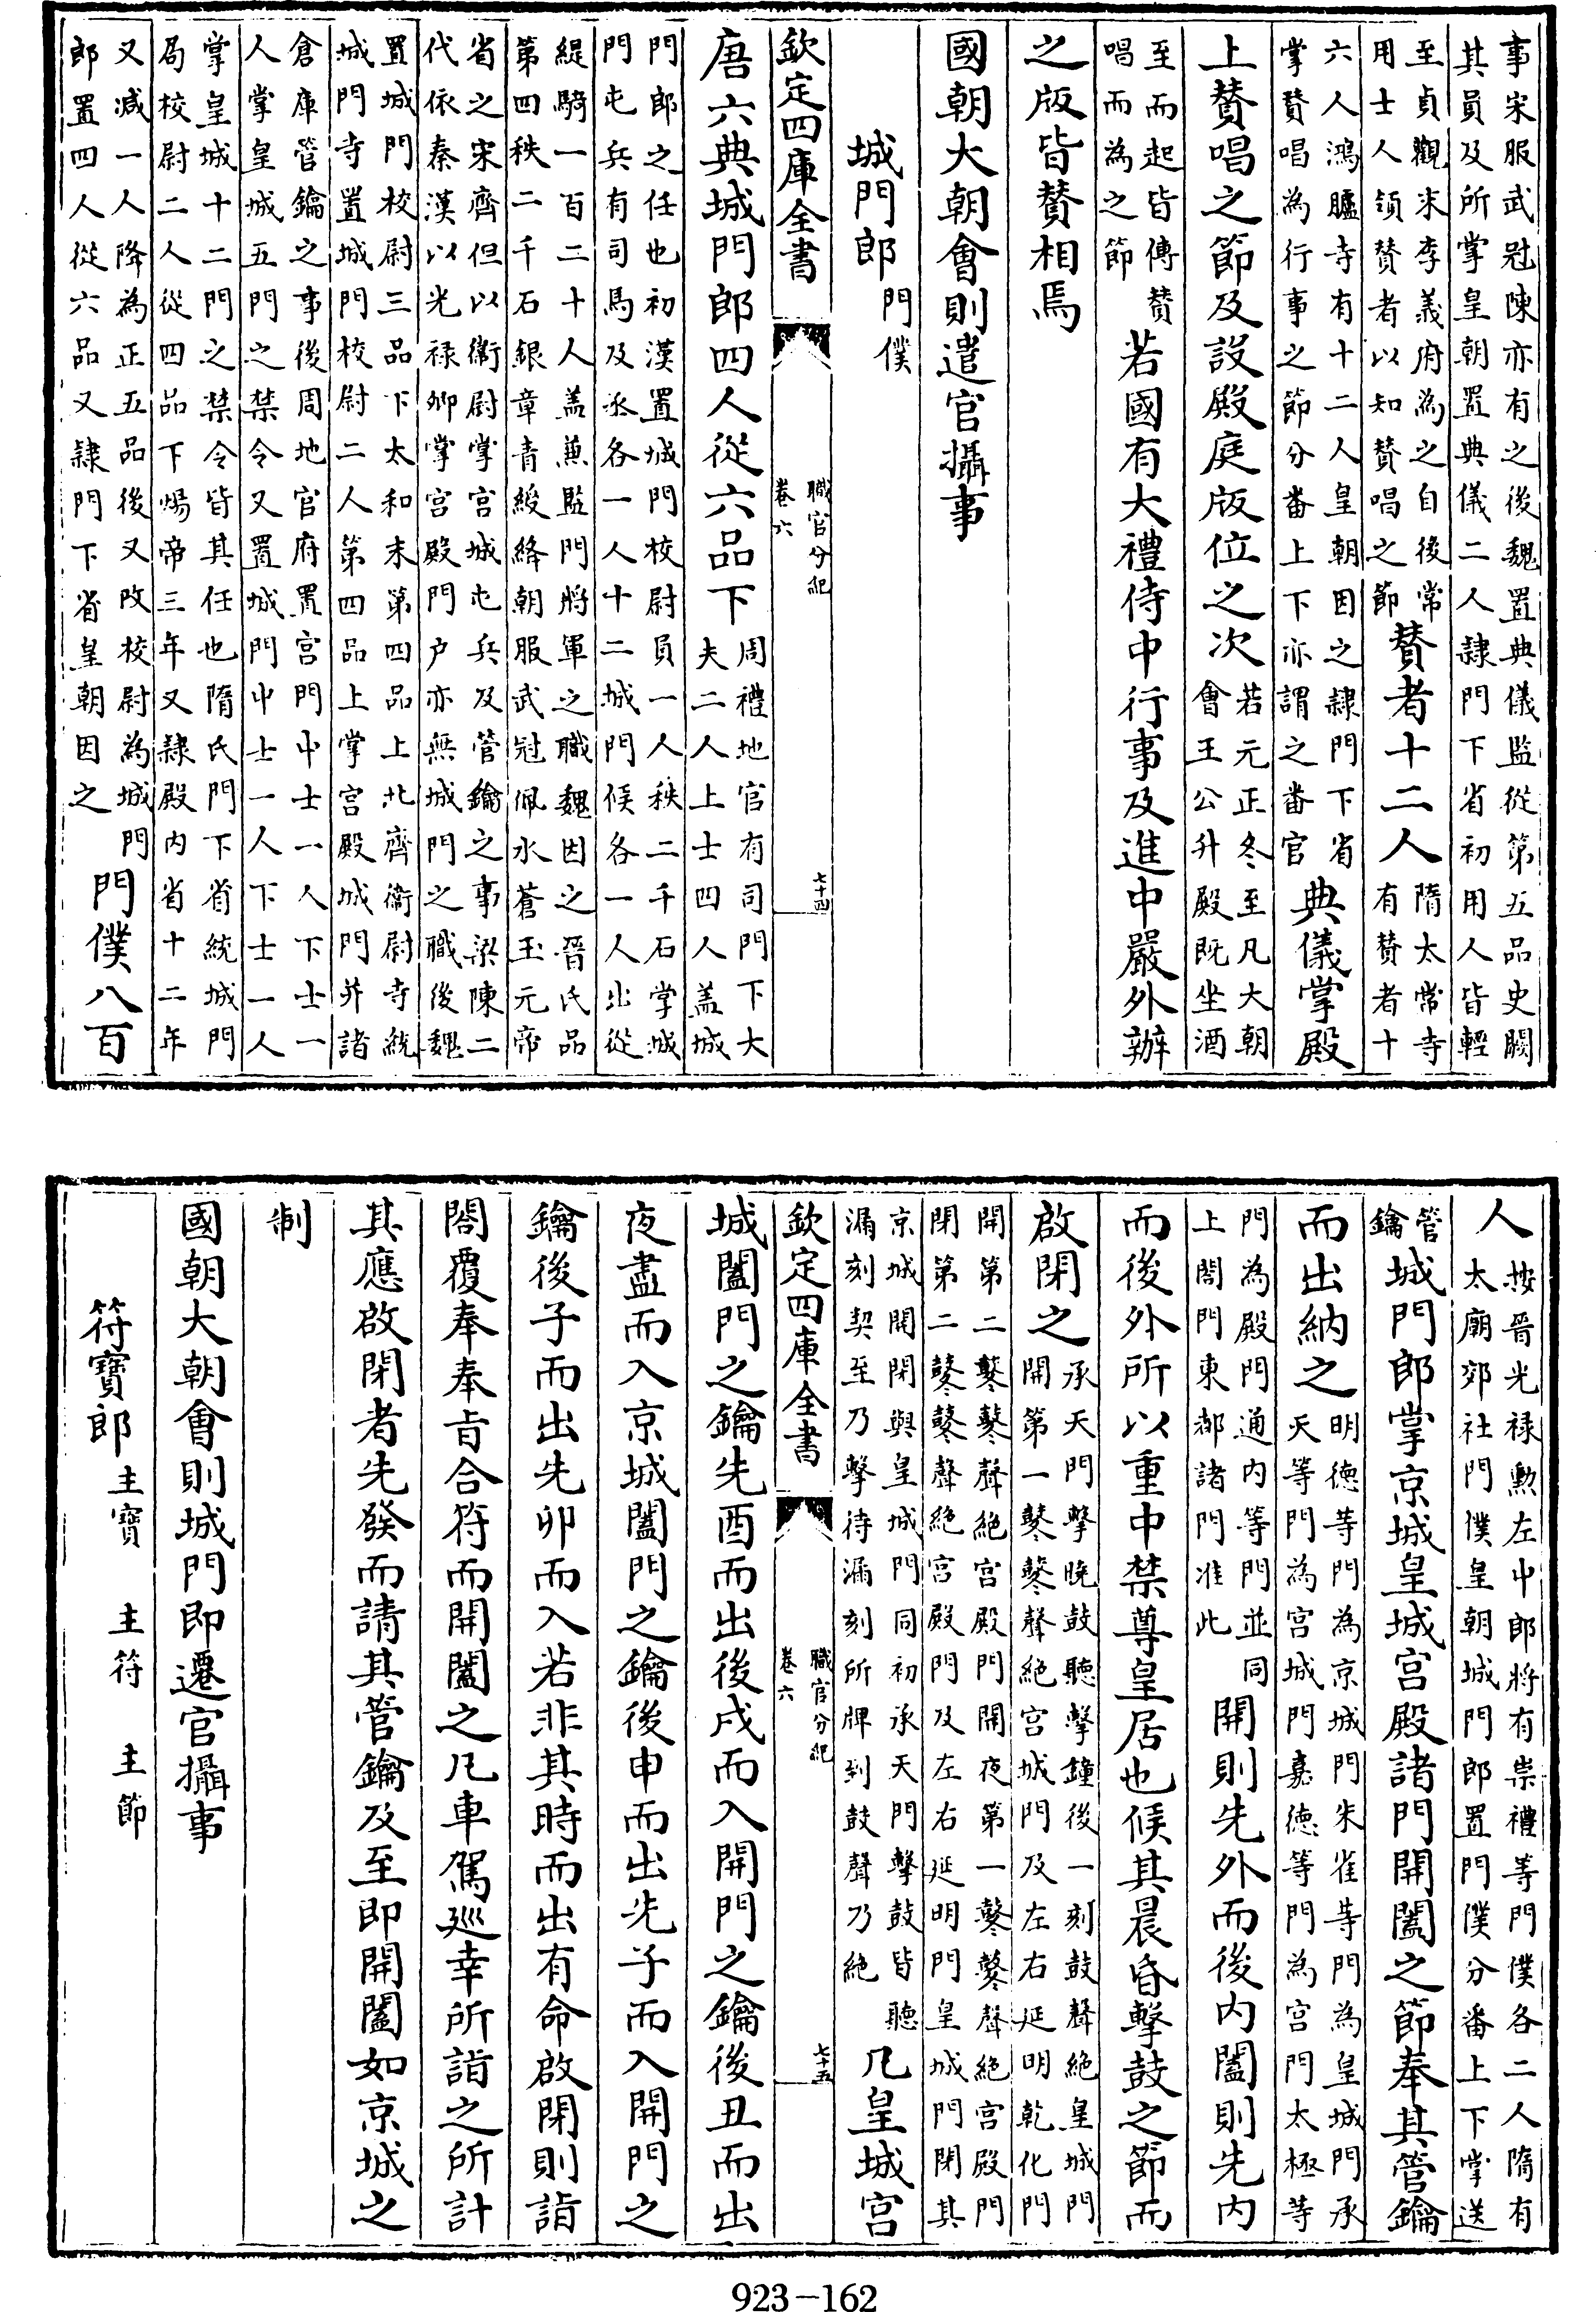 事宋服武冠陳亦有之後魏置典儀監從第五品史闕
其員及所掌皇朝置典儀二人隸門下省初用人皆輕
至貞觀末李義府為之自後常
用士人領贊者以知贊唱之節
贊者十二人
隋太常寺
有贊者十
六人鴻臚寺有十二人皇朝因之隸門下省
掌贊唱為行事之節分番上下亦謂之番官
典儀掌殿
上贊唱之節及設殿庭版位之次
若元正冬至凡大朝
會王公升殿既坐酒
至而起皆傳贊
唱而為之節
若國有大禮侍中行事及進中嚴外辦
之版皆贊相焉
國朝大朝會則遣官攝事
城門郎門僕
欽定四庫全書
職官分紀
卷六
七十四
唐六典城門郎四人從六品下
周禮地官有司門下大
夫二人上士四人蓋城
門郎之任也初漢置城門校尉員一人秩二千石掌城
門屯兵有司馬及丞各一人十二城門候各一人出從
緹騎一百二十人蓋兼監門將軍之職魏因之晉氏品
第四秩二千石銀章青綬絳朝服武冠佩水蒼玉元帝
省之宋齊但以衛尉掌宮城屯兵及管鑰之事梁陳二
代依秦漢以光祿卿掌宮殿門户亦無城門之職後魏
置城門校尉三品下太和末第四品上北齊衛尉寺統
城門寺置城門校尉二人第四品上掌宮殿城門并諸
倉庫管鑰之事後周地官府置宮門中士一人下士一
人掌皇城五門之禁令又置城門中士一人下士一人
掌皇城十二門之禁令皆其任也隋氏門下省統城門
局校尉二人從四品下煬帝三年又隸殿內省十二年
又減一人降為正五品後又改校尉為城門
郎置四人從六品又隸門下省皇朝因之
門僕八百
人
按晉光祿勲左中郎將有崇禮等門僕各二人隋有
太廟郊社門僕皇朝城門郎置門僕分番上下掌送
管
鑰
城門郎掌京城皇城宮殿諸門開闔之節奉其管鑰
而出納之
明德等門為京城門朱雀等門為皇城門承
天等門為宮城門嘉德等門為宮門太極等
門為殿門通內等門並同
上閤門東都諸門准此
開則先外而後內闔則先內
而後外所以重中禁尊皇居也候其晨昏擊鼓之節而
啟閉之
承天門擊曉鼓聽擊鐘後一刻鼓聲絶皇城門
開第一鼕鼕聲絶宮城門及左右延明乾化門
開第二鼕鼕聲絶宮殿門開夜第一鼕鼕聲絶宮殿門
閉第二鼕鼕聲絶宮殿門及左右延明門皇城門閉其
京城開閉與皇城門同初承天門擊鼓皆聽
漏刻契至乃擊待漏刻所牌到鼓聲乃絶
凡皇城宮
欽定四庫全書
職官分紀
卷六
七十五
城闔門之鑰先酉而出後戌而入開門之鑰後丑而出
夜盡而入京城闔門之鑰後申而出先子而入開門之
鑰後子而出先卯而入若非其時而出有命啟閉則詣
閤覆奉奉㫖合符而開闔之凡車駕巡幸所詣之所計
其應啟閉者先發而請其管鑰及至即開闔如京城之
制
國朝大朝會則城門即遷官攝事
符寶郎主寶 主符 主節
923-162